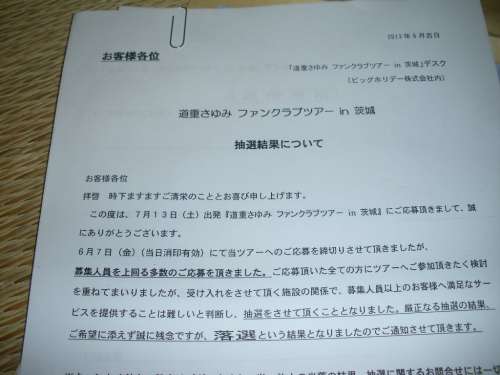 2013年6月吉日
お客様各位
「道重さゆみ ファンクラブツアー in 茨城」デスク
(ビッグホリデー株式会社内)
道重さゆみ ファンクラブツアー in 茨城
抽選結果について
お客様各位
拝啓 時下ますますご清栄のこととお喜び申し上げます。
この度は、7月13日(土)出発『道重さゆみ ファンクラブツアー in 茨城』にご応募頂きまして、誠
にありがとうございます。
6月7日(金)(当日消印有効)にて当ツアーへのご応募を締切りさせて頂きましたが、
募集人員を上回る多数のご応募を頂きました。ご応募頂いた全ての方にツアーへご参加頂きたく検討
を重ねてまいりましたが、受け入れをさせて頂く施設の関係で、募集人員以上のお客様へ満足なサー
ビスを提供することは難しいと判断し、抽選をさせて頂くこととなりました。厳正なる抽選の結果、
ご希望に添えず誠に残念ですが、落選という結果となりましたのでご通知させて頂きます。